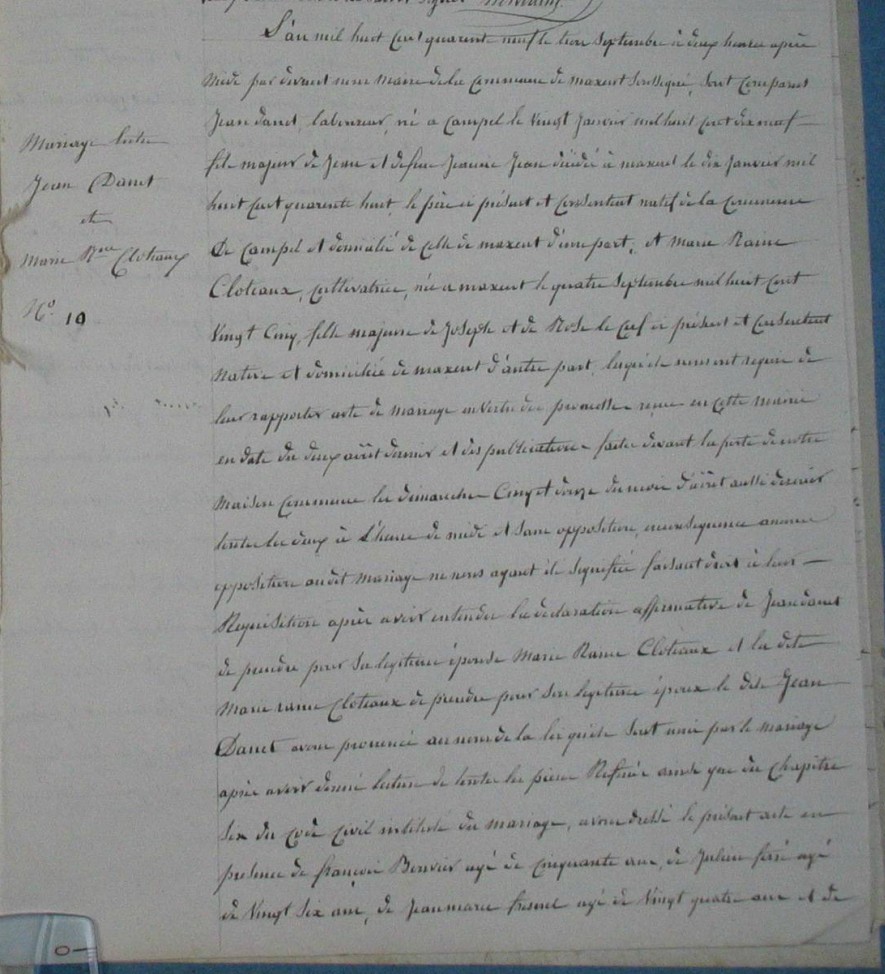 L'an mil huit cent quarent neuf le trois Septembre à deux heures après
midi par devant nous Maire de la Commune de maxent soussigné, sont Comparus
Jean danet, laboureur, né a Campel le Vingt Janvier mil huit cent dix neuf
fils majeur de Jean et de feue Jeanne Jean décédée à maxent le dix Janvier mil
huit cent quarante huit, le père ici présent et Consentent natif de la Commune
De Campel et domicilié de celle de maxent d'une part, et Marie Raine
Cloteaux, cultivatrice, née a maxent le quatre Septembre mil huit cent
Vingt Cinq, fille majeure de Joseph et de Rose le Cuf ici présent et Consentent
Native et domiciliée de maxent d'autre part, lesquels nous ont requis de
leur rapporter acte de Mariage en vertu des promesses reçue en cette mairie
en date du deux août dernier et des publications faites devant la porte de notre
Maison Commune les dimanches Cinq et douze du mois d'août aussi dernier
toutes les deux à l'heure de midi et sans opposition, en conséquence aucune
opposition au dit Mariage ne nous ayant été signifiée faisant droit à leur
Requisition après avoir entendu la declaration affirmative de Jean danet
de prendre pour sa légitime épouse Marie Raine Cloteaux et la dite
Marie raine Cloteaux de prendre pour son légitime époux le dit Jean
Danet avons prononcé au nom de la loi qu'ils sont unis par le Mariage
après avoir donné lecture de toutes les pièces Refusée ainsi que du Chapitre
Six du Code Civil intitulé du Mariage, avons dressé le présent acte en
présence de françois Bouvier agé de Cinquante ans, de Julien ferré agé
de Vingt Six ans, de Jean marie fresnel agé de Vingt quatre ans et de
Mariage Entre
Jean Danet
et
Marie Rne Cloteaux
No. 19